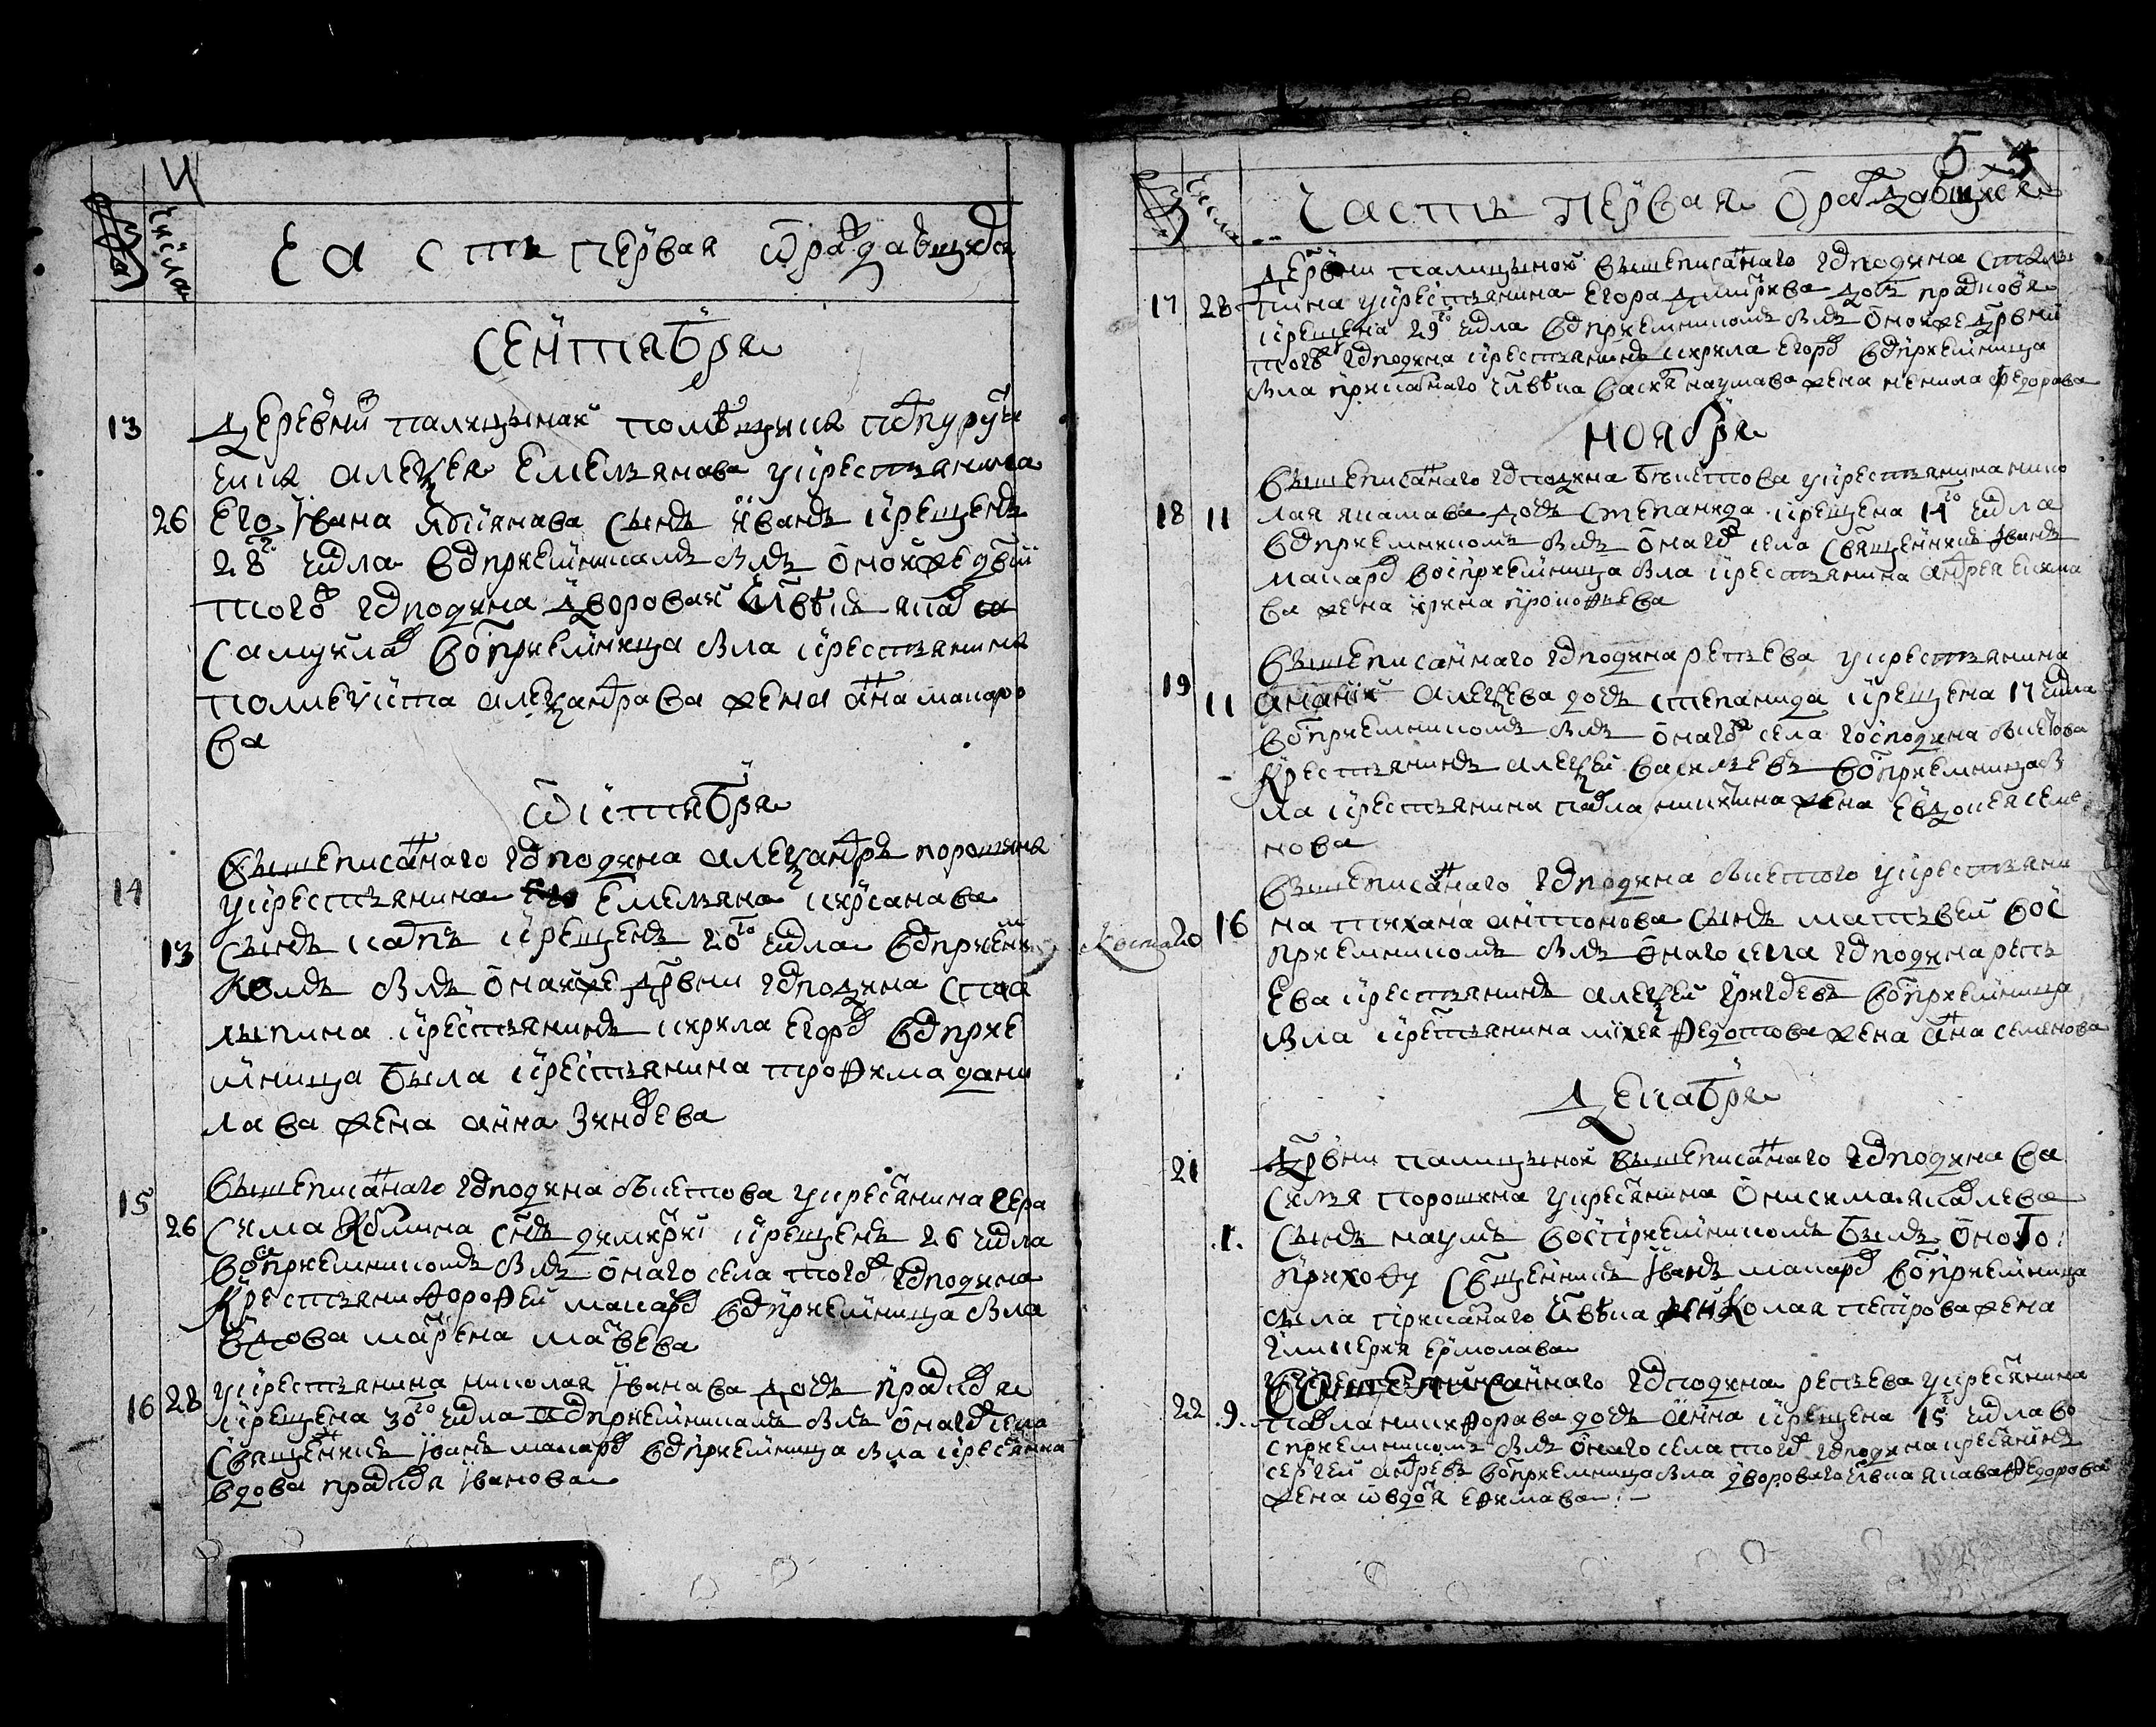 4
числа
Часть первая ѡраждающихся
Сентября
13
Деревни Палицынак помѣщика подпоруч
чика Алеѯея Емельянова у крестьянина
26 Его Ивана Ябкянава сынъ Иванъ крещенъ
28го числа воспрiемникамъ былъ оной же двни
тогож гдподина дворовай члвѣкъ
Самуила воприемница была крестьянина
Поликухта Алеѯандрава жена Анна Макаро
ва
Ѡктября
Вышеписаннаго гдподина Алеѯандръ Порошина
14 у крестьянина Емельяна Кирсанава
13 сынъ Карпъ крещенъ 20го числа восприемни
комъ былъ онай же дрвни гдподина Ста
лыпина крестьянинъ Кирила Егоров воспрiе
мница была крестьянина Трофима Дани
лава жена Анна Зинавева
15 Вышеписаннаго гдподина Бы्кетова у крестьянина Гера
26 сима сынъ Димитриi крещенъ 26 числа
воспрiемникомъ былъ онаго села тогож гдподина
крестьяни Дорофеи Макаров воспрiемница была
вдова Марѳена Матвева
16 28 у крестьянина Николая Иванава дочь Праскавя
крещена 30го числа воспрiемникамъ былъ онаго села
Священникъ Иванъ Макаров воспрiемница была крестьянина
вдова Праскавя Иванова
5
числа
Часть первая ѡраждающихся
Деревни Палицынай вышеписаннаго гдподина Сталы
17 28 пина у крестьянина Егора Дмитрива дочь Праскавя
крещена 29го числа воспрiемникомъ былъ оной же дрвни
тогож гдподина крестьянинъ Кирила Егоров воспрiемница
была приписаннаго члвѣка Васил Наумава жена Ненила Ѳедорава
Ноября
Вышеписаннаго гдподина Бекетова у крестьянина Нико
18 11 лая Ипатава дочь Степанида крещена 14го числа
воспрiемникомъ былъ онагож села священникъ Иванъ
Макаров воспрiемница была крестьянина Андрея Екима
ва жена Ирина Прокофьева
Вышеписаннаго гдподина Репьева у крестьянина
19 11 Ананiи Алеѯева дочь Степанида крещена 17 числа
вопрiемникомъ былъ онагож села господина Бекетова
крестьянинъ Алеѯеи Васильевъ вопрiемница бы
ла крестьянина Павла Никитина жена Евдокея Семе
нова
Вышеписаннаго гдподина Бекетого у крестьяни
20 16 на Тихана Антонова сынъ Матьвеи вос
приемникомъ былъ онаго села гдподина Репь
ева крестьянинъ Алеѯеи Григорев вопрiемница
была крестьянина Михея Федотова жена Анна Семенова
Декабря
21 Дрвни Палицынои вышеписаннаго гдподина Ва
силья Порошина у крестьянина Онисима Яковлева
.1. сынъ Наумъ воспрiемникомъ былъ оного
приходу Священникъ Иванъ Макаров вопрiемница
была приписаннаго члвѣка Николая Петрова жена
Гликерия Ермолава
Вышеписаннаго гдподина Репьева у крестьянина
22 .9. Павла Никифорава дочь Анна крещена 15 числа во
сприемникомъ былъ онаго села тогож гдподина крестьянинъ
Сергеи Андреев вопрiемница была дворового члвка Якава Ѳедорова
жена Ѡвдоѳя Ефимава